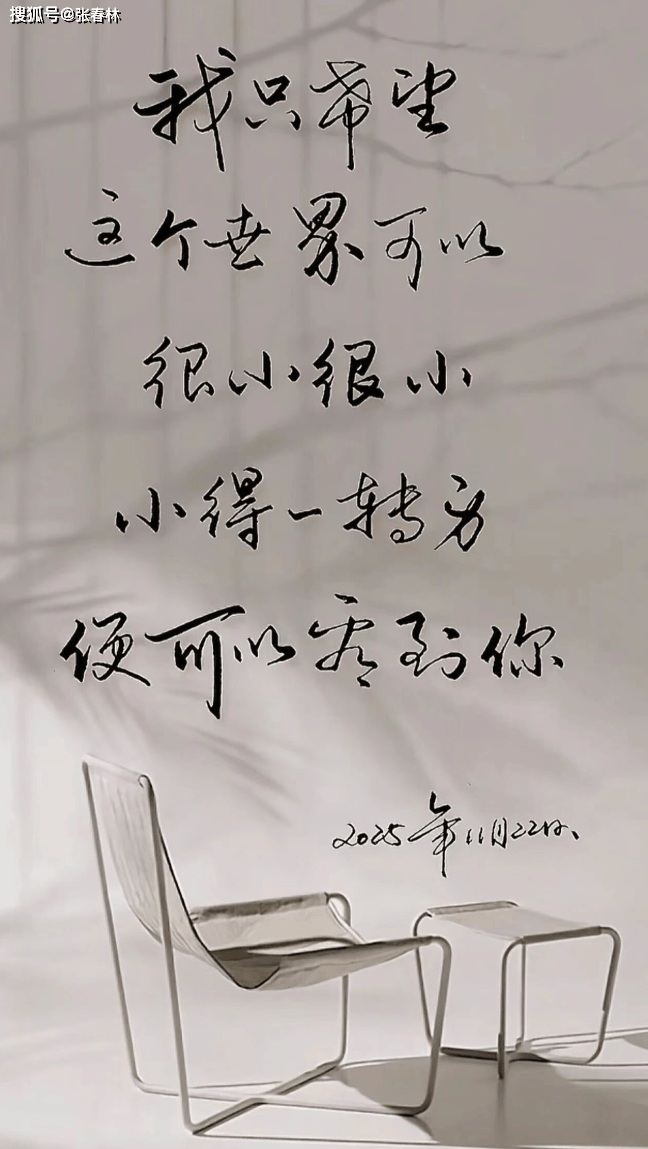 搜狐号@张春林
我只希望
这个世界可以
很小很小
小得一转身
便可以看到你
2025年11月22日、